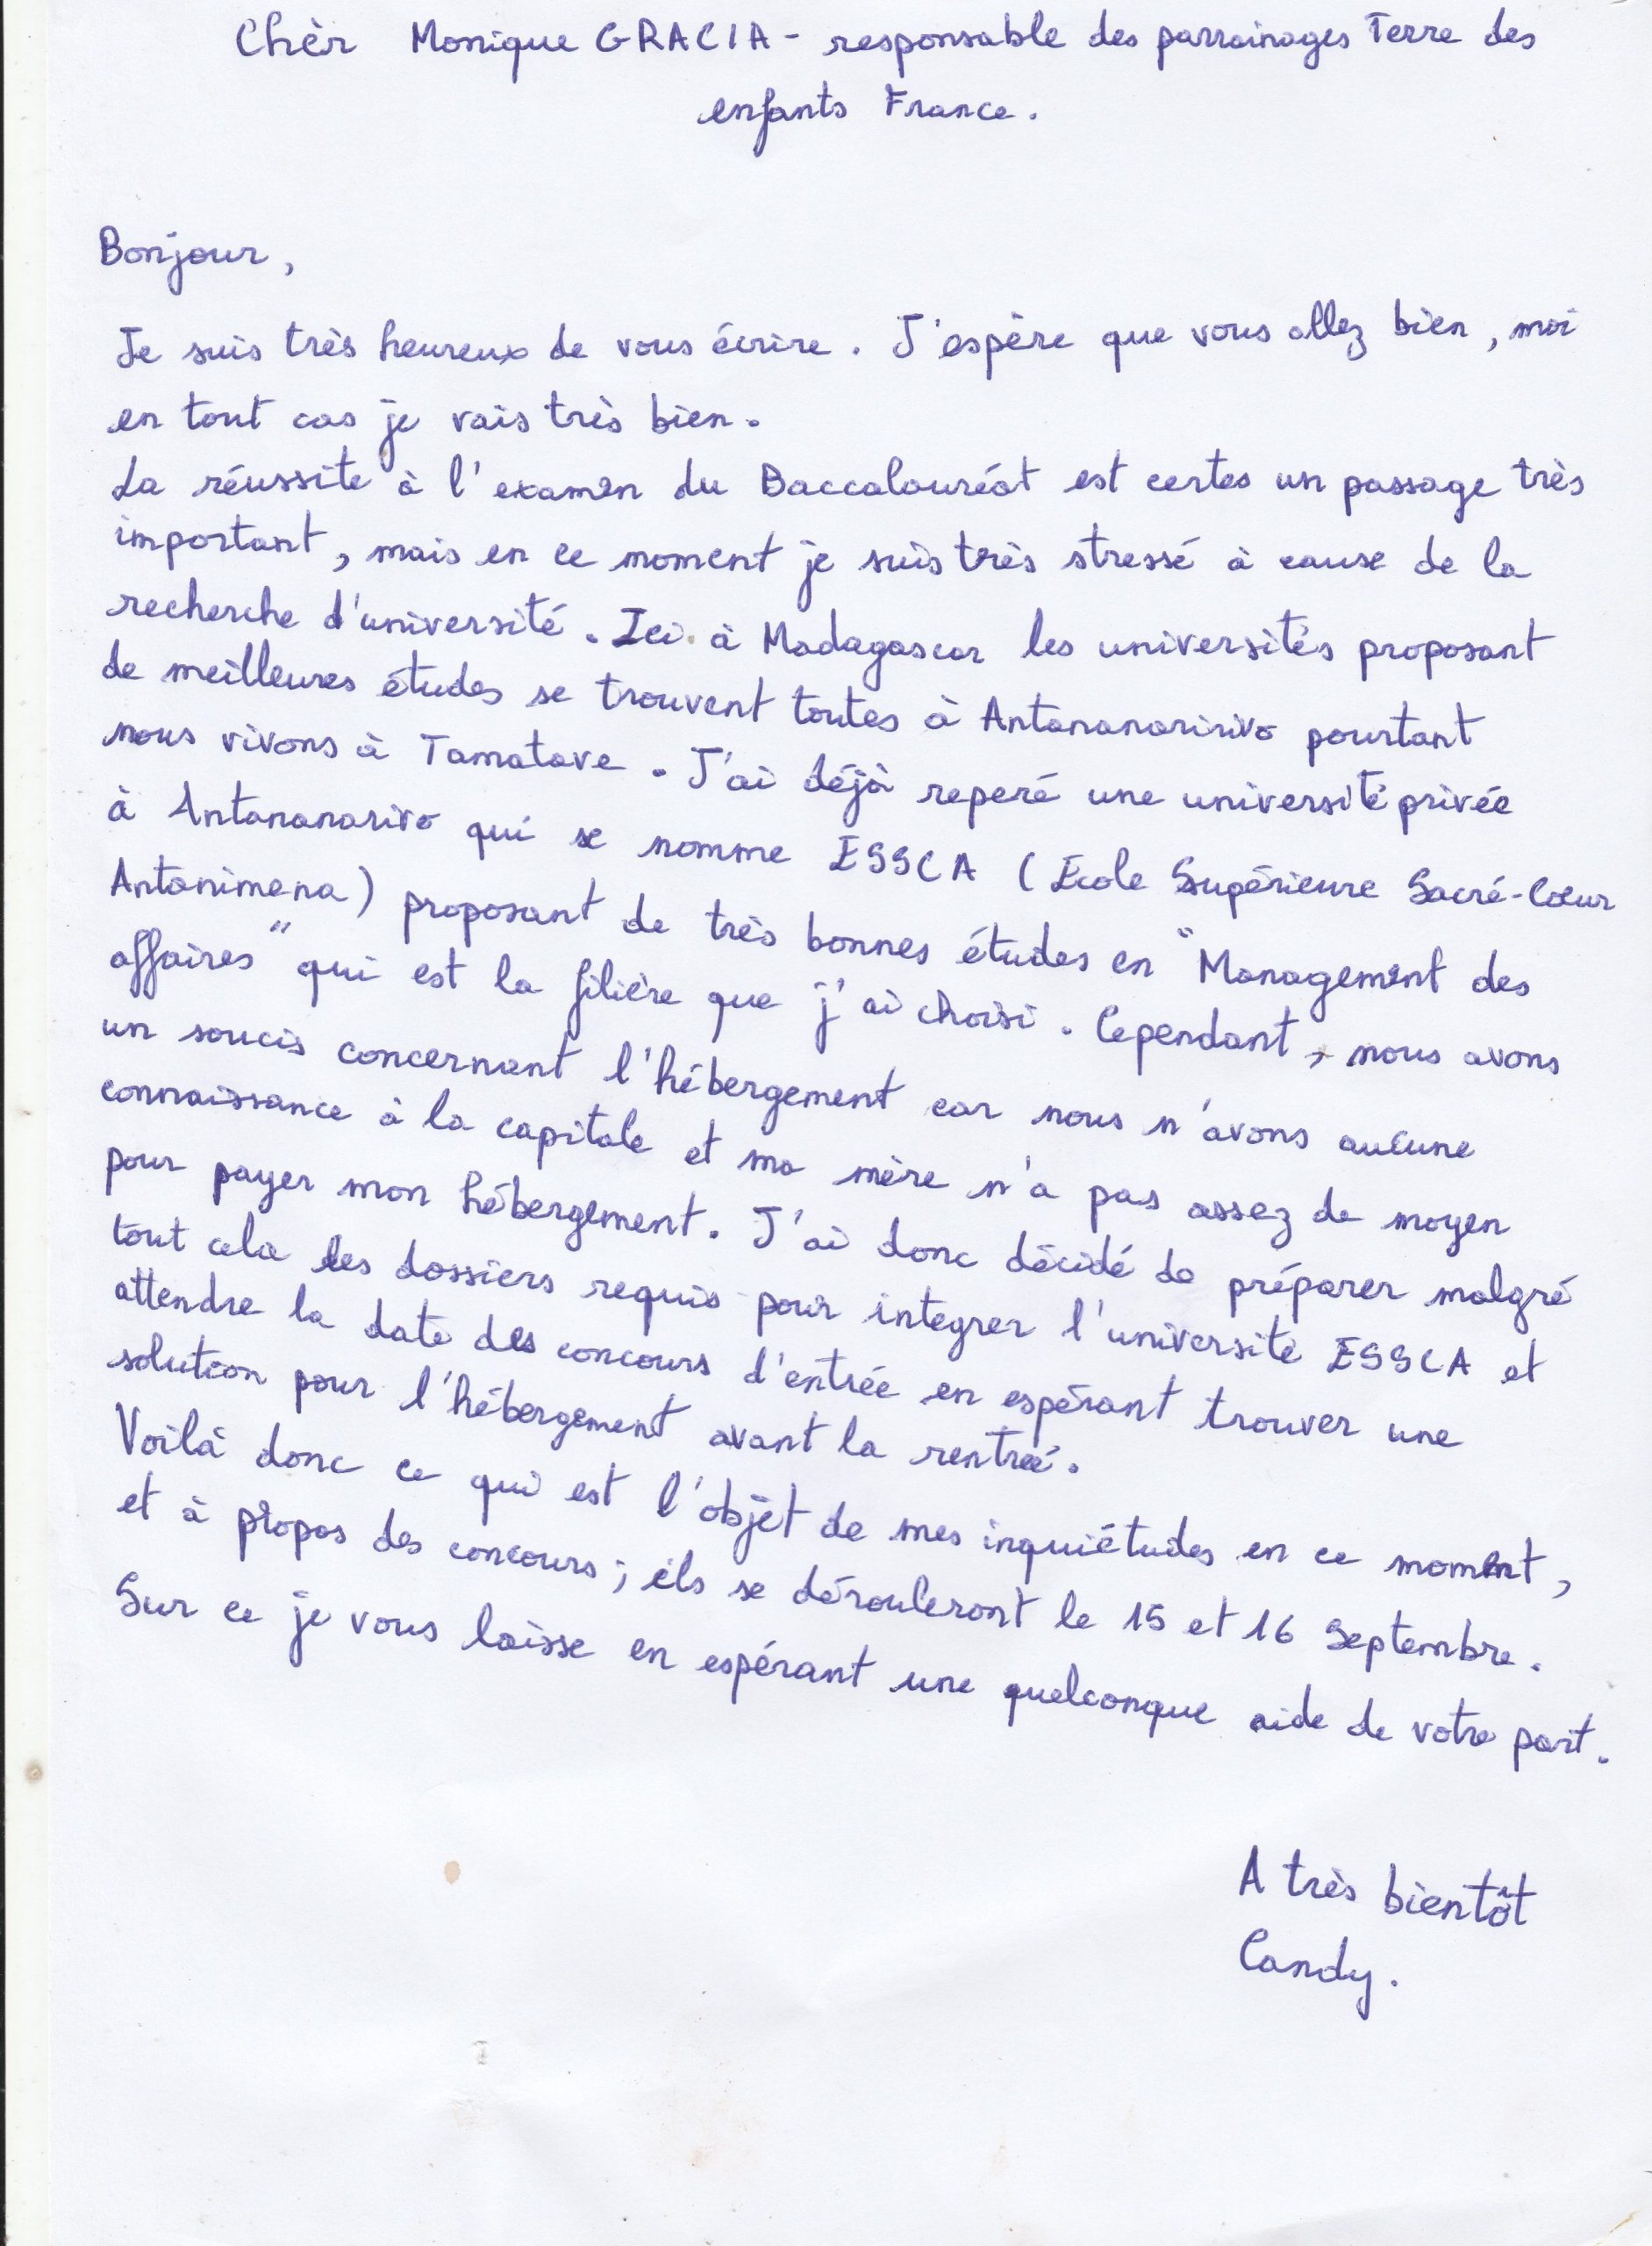 Chèr Monique GRACIA - responsable des parrainages Terre des
enfants France.
Bonjour,
Je suis très heureux de vous écrire. J'espère que vous allez bien, moi
en tout cas je vais très bien.
La réussite à l'examen du Baccalauréat est certes un passage très
important, mais en ce moment je suis très stressé à cause de la
recherche d'université. Ici à Madagascar les universités proposant
de meilleures études se trouvent toutes à Antananaririvo pourtant
nous vivons à Tamatave. J'ai déjà reperé une université privée
à Antananarivo qui se nomme ESSCA (Ecole Supérieure Sacré-Cœur
Antanimena) proposant de très bonnes études en "Management des
affaires" qui est la filière que j'ai choisi. Cependant, nous avons
un soucis concernant l'hébergement car nous n'avons aucune
connaissance à la capitale et ma mère n'a pas assez de moyen
pour payer mon hébergement. J'ai donc décidé de préparer malgré
tout cela les dossiers requis pour integrer l'université ESSCA et
attendre la date des concours d'entrée en espérant trouver une
solution pour l'hébergement avant la rentrée.
Voilà donc ce qui est l'objet de mes inquiétudes en ce moment,
et à propos des concours; ils se dérouleront le 15 et 16 Septembre.
Sur ce je vous laisse en espérant une quelconque aide de votre part.
A très bientôt
Candy.